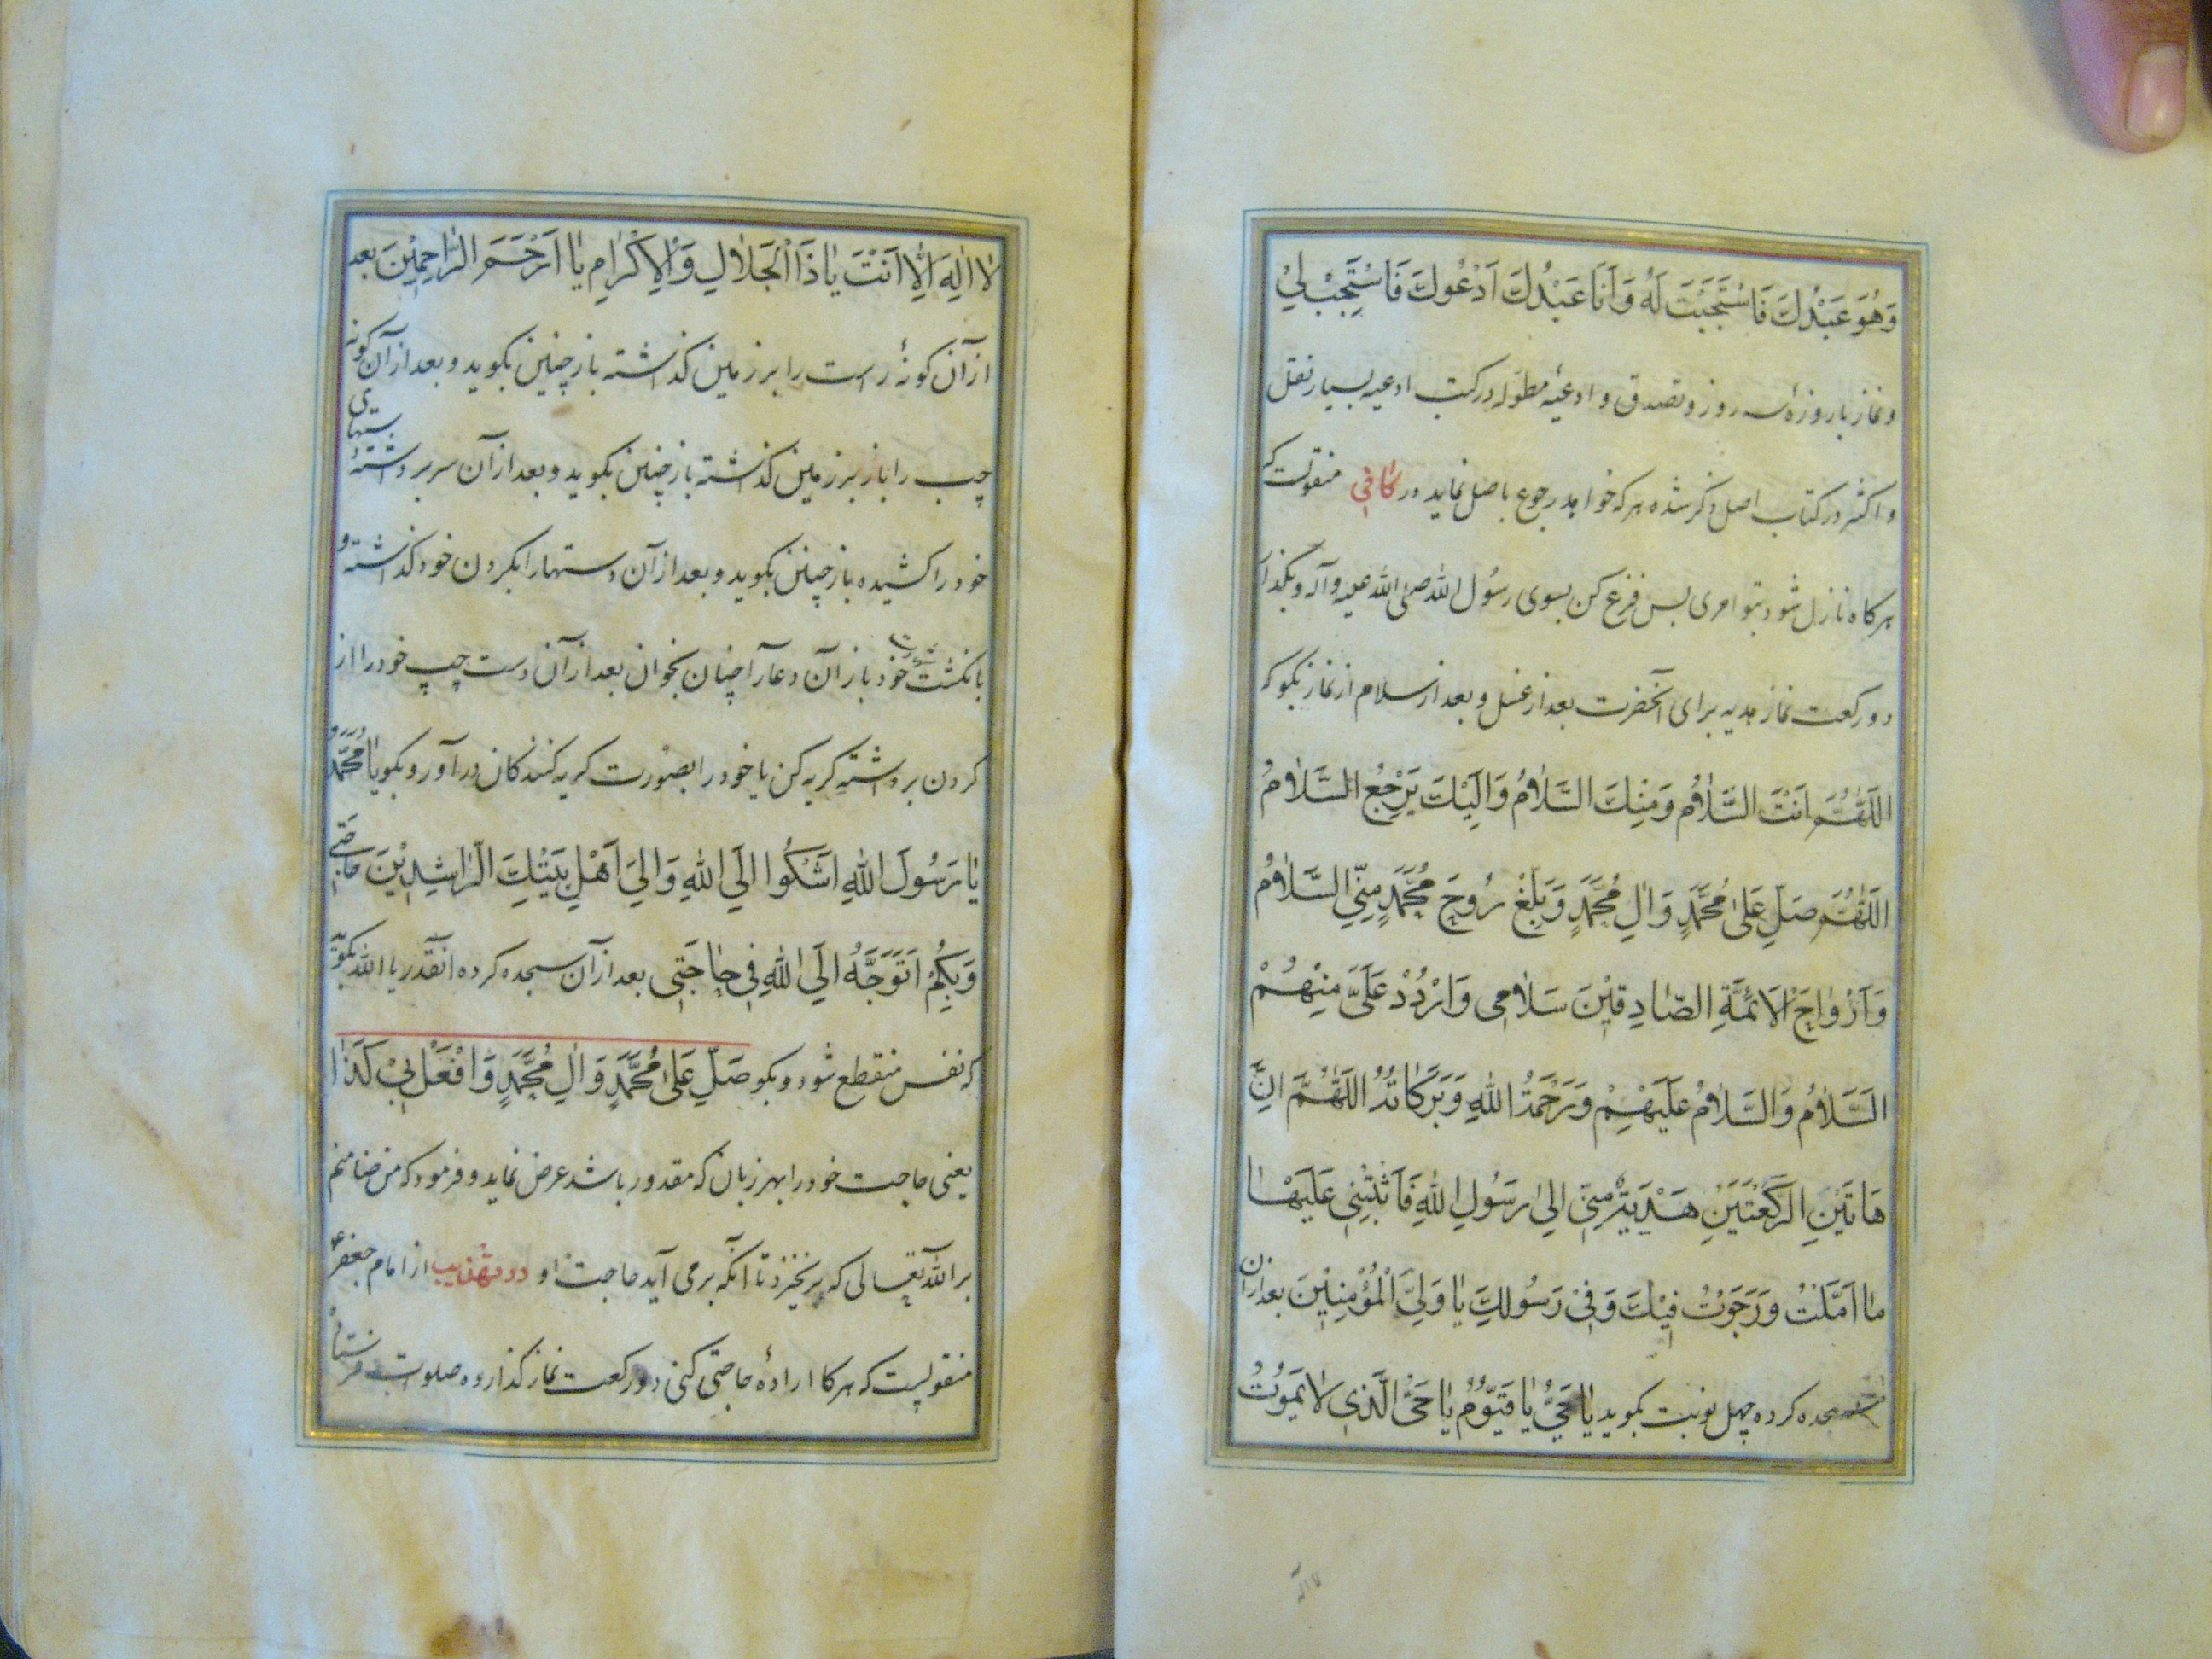 وَهُوَ عَبْدُكَ فَاسْتَجَبْتَ لَهُ وَاَنَا عَبْدُكَ اَدْعُوكَ فَاسْتَجِبْ لِيْ
و نماز با روزهٔ سه روز و تصدق و ادعیهٔ مطوله در کتب ادعیه بسیار نقل
و اکثر در کتاب اصل ذکر شده هر که خواهد رجوع باصل نماید در کافی منقولست که
هر کاه نازل شود بتو امری بس فزع کن بسوی رسُول الله صلی الله علیه وآله و بکذار
دو رکعت نماز هدیه برای آنحضرت بعد از غسل و بعد از سلام از نماز بکو که
اَللّٰهُمَّ اَنْتَ السَّلٰامُ وَمِنْكَ السَّلٰامُ وَاِلَيْكَ يَرْجِعُ السَّلٰامُ
اَللّٰهُمَّ صَلِّ عَلىٰ مُحَمَّدٍ وَاٰلِ مُحَمَّدٍ وَبَلِّغْ رُوحَ مُحَمَّدٍ مِنِّي السَّلٰامُ
وَاَرْوٰاحَ الْاَئِمَّةِ الصّٰادِقِيْنَ سَلٰامِى وَارْدُدْ عَلَىَّ مِنْهُمْ
السَّلٰامُ وَالسَّلٰامُ عَلَيْهِمْ وَرَحْمَةُ اللهِ وَبَرَكٰاتُهُ اَللّٰهُمَّ اِنَّ
هَاتَيْنِ الرَّكْعَتَيْنِ هَدِيَّةٌ مِنّى اِلىٰ رَسُولِ اللهِ فَاَثِبْنِى عَلَيْهِمٰا
مٰا اَمَّلْتُ وَرَجَوْتُ فِيْكَ وَفِىْ رَسُولِكَ يٰا وَلِىَّ الْمُؤْمِنِيْنَ بعد از ان
سجده کرده چهل نوبت بکوید يٰا حَىُّ يٰا قَيُّوْمُ يٰا حَىُّ الَّذِى لٰا يَمُوْتُ
لا اله
لٰا اِلٰهَ اِلّٰا اَنْتَ يٰا ذَا الْجَلٰالِ وَالْاِكْرٰامِ يٰا اَرْحَمَ الرّٰاحِمِيْنَ بعد
از آن کونهٔ راست را بر زمین کذاشته باز چنین بکوید و بعد از آن کونه
چپ را باز بر زمین کذاشته باز چنین بکوید و بعد از آن سر برداشته دستهای
خود را کشیده باز چنین بکوید و بعد از آن دستها را بکردن خود کذاشته و
بانکشت خود باز آن دعا را چنان بخوان بعد از آن دست چپ خود را از
کردن برداشته کریه کن یا خود را بصورت کریه کنندکان در آور و بکو يٰا مُحَمَّدُ
يٰا رَسُولَ اللهِ اَشْكُوا اِلَى اللهِ وَاِلىٰ اَهْلِ بَيْتِكَ الرّٰاشِدِيْنَ حٰاجَتى
وَبِكُمْ اَتَوَجَّهُ اِلَى اللهِ فِى حٰاجَتِى بعد از آن سجده کرده آنقدر یا الله بکوید
که نفس منقطع شود و بکو صَلِّ عَلىٰ مُحَمَّدٍ وَاٰلِ مُحَمَّدٍ وَافْعَلْ بِىْ كَذٰا
یعنی حاجت خود را بهر زبان که مقدور باشد عرض نماید و فرمود که من ضامنم
بر الله تعالی که بر نخیزد تا آنکه برمی آید حاجت او در تهذیب از امام جعفر ع
منقولیست که هر کا ارادهٔ حاجتی کنی دو رکعت نماز کذار و صلوات